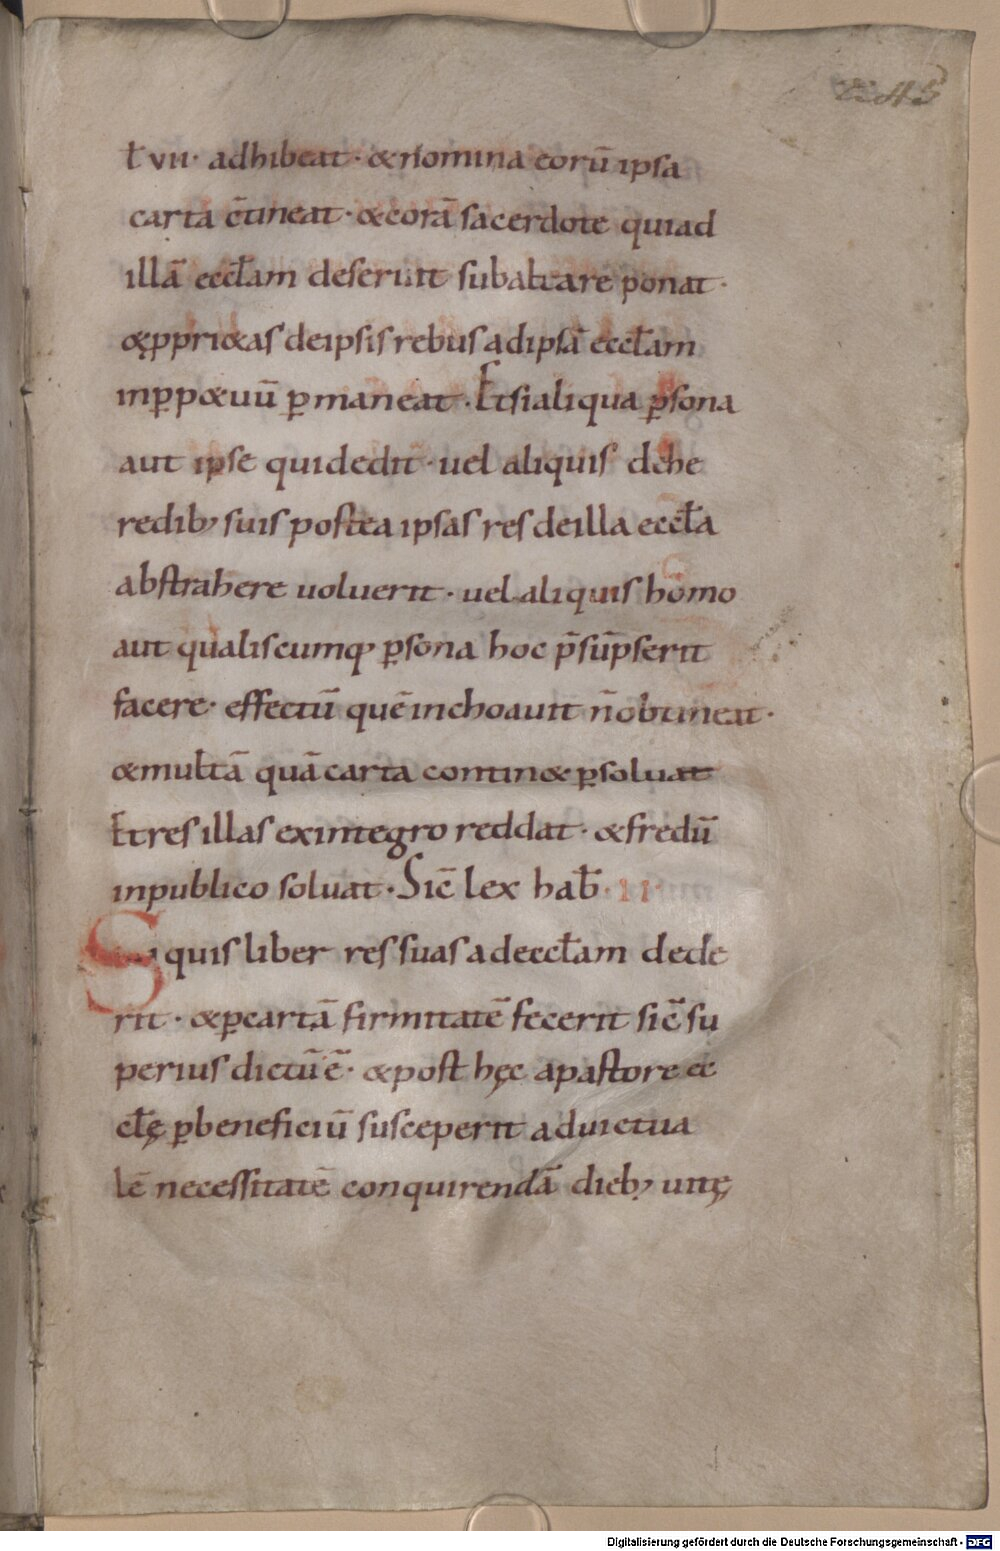 ł vii· adhibeat· &nomina eorū ipsa
carta c̄tineat· &corā sacerdote quiad
illā eccłam deseruit subaltare ponat·
&ꝓpri&as deipsis rebus adipsā eccłam
inꝑp&uū ꝑmaneat· Etsialiqua ꝑsona
aut ipse quidedit· uel aliquis dehe
redib; suis postea ipsas res deilla eccła
abstrahere uoluerit· uel aliquis homo
aut qualiscumq; ꝑsona hoc p̄sūpserit
facere· effectū quē inchoauit n̄ obtineat·
&multā quā carta contin& ꝑsoluat
Etres illas exintegro reddat· &fredū
inpublico soluat· Sic̄ lex hab̄· II
Si quis liber res suas adeccłam dede
rit· &ꝑcartā firmitatē fecerit sic̄ su
perius dictū ē· &post hęc apastore ec
cłę ꝑbeneficiū susceperit aduictua
lē necessitatē conquirendā dieb; uitę
Digitalisierung gefördert durch die Deutsche Forschungsgemeinschaft - DFG